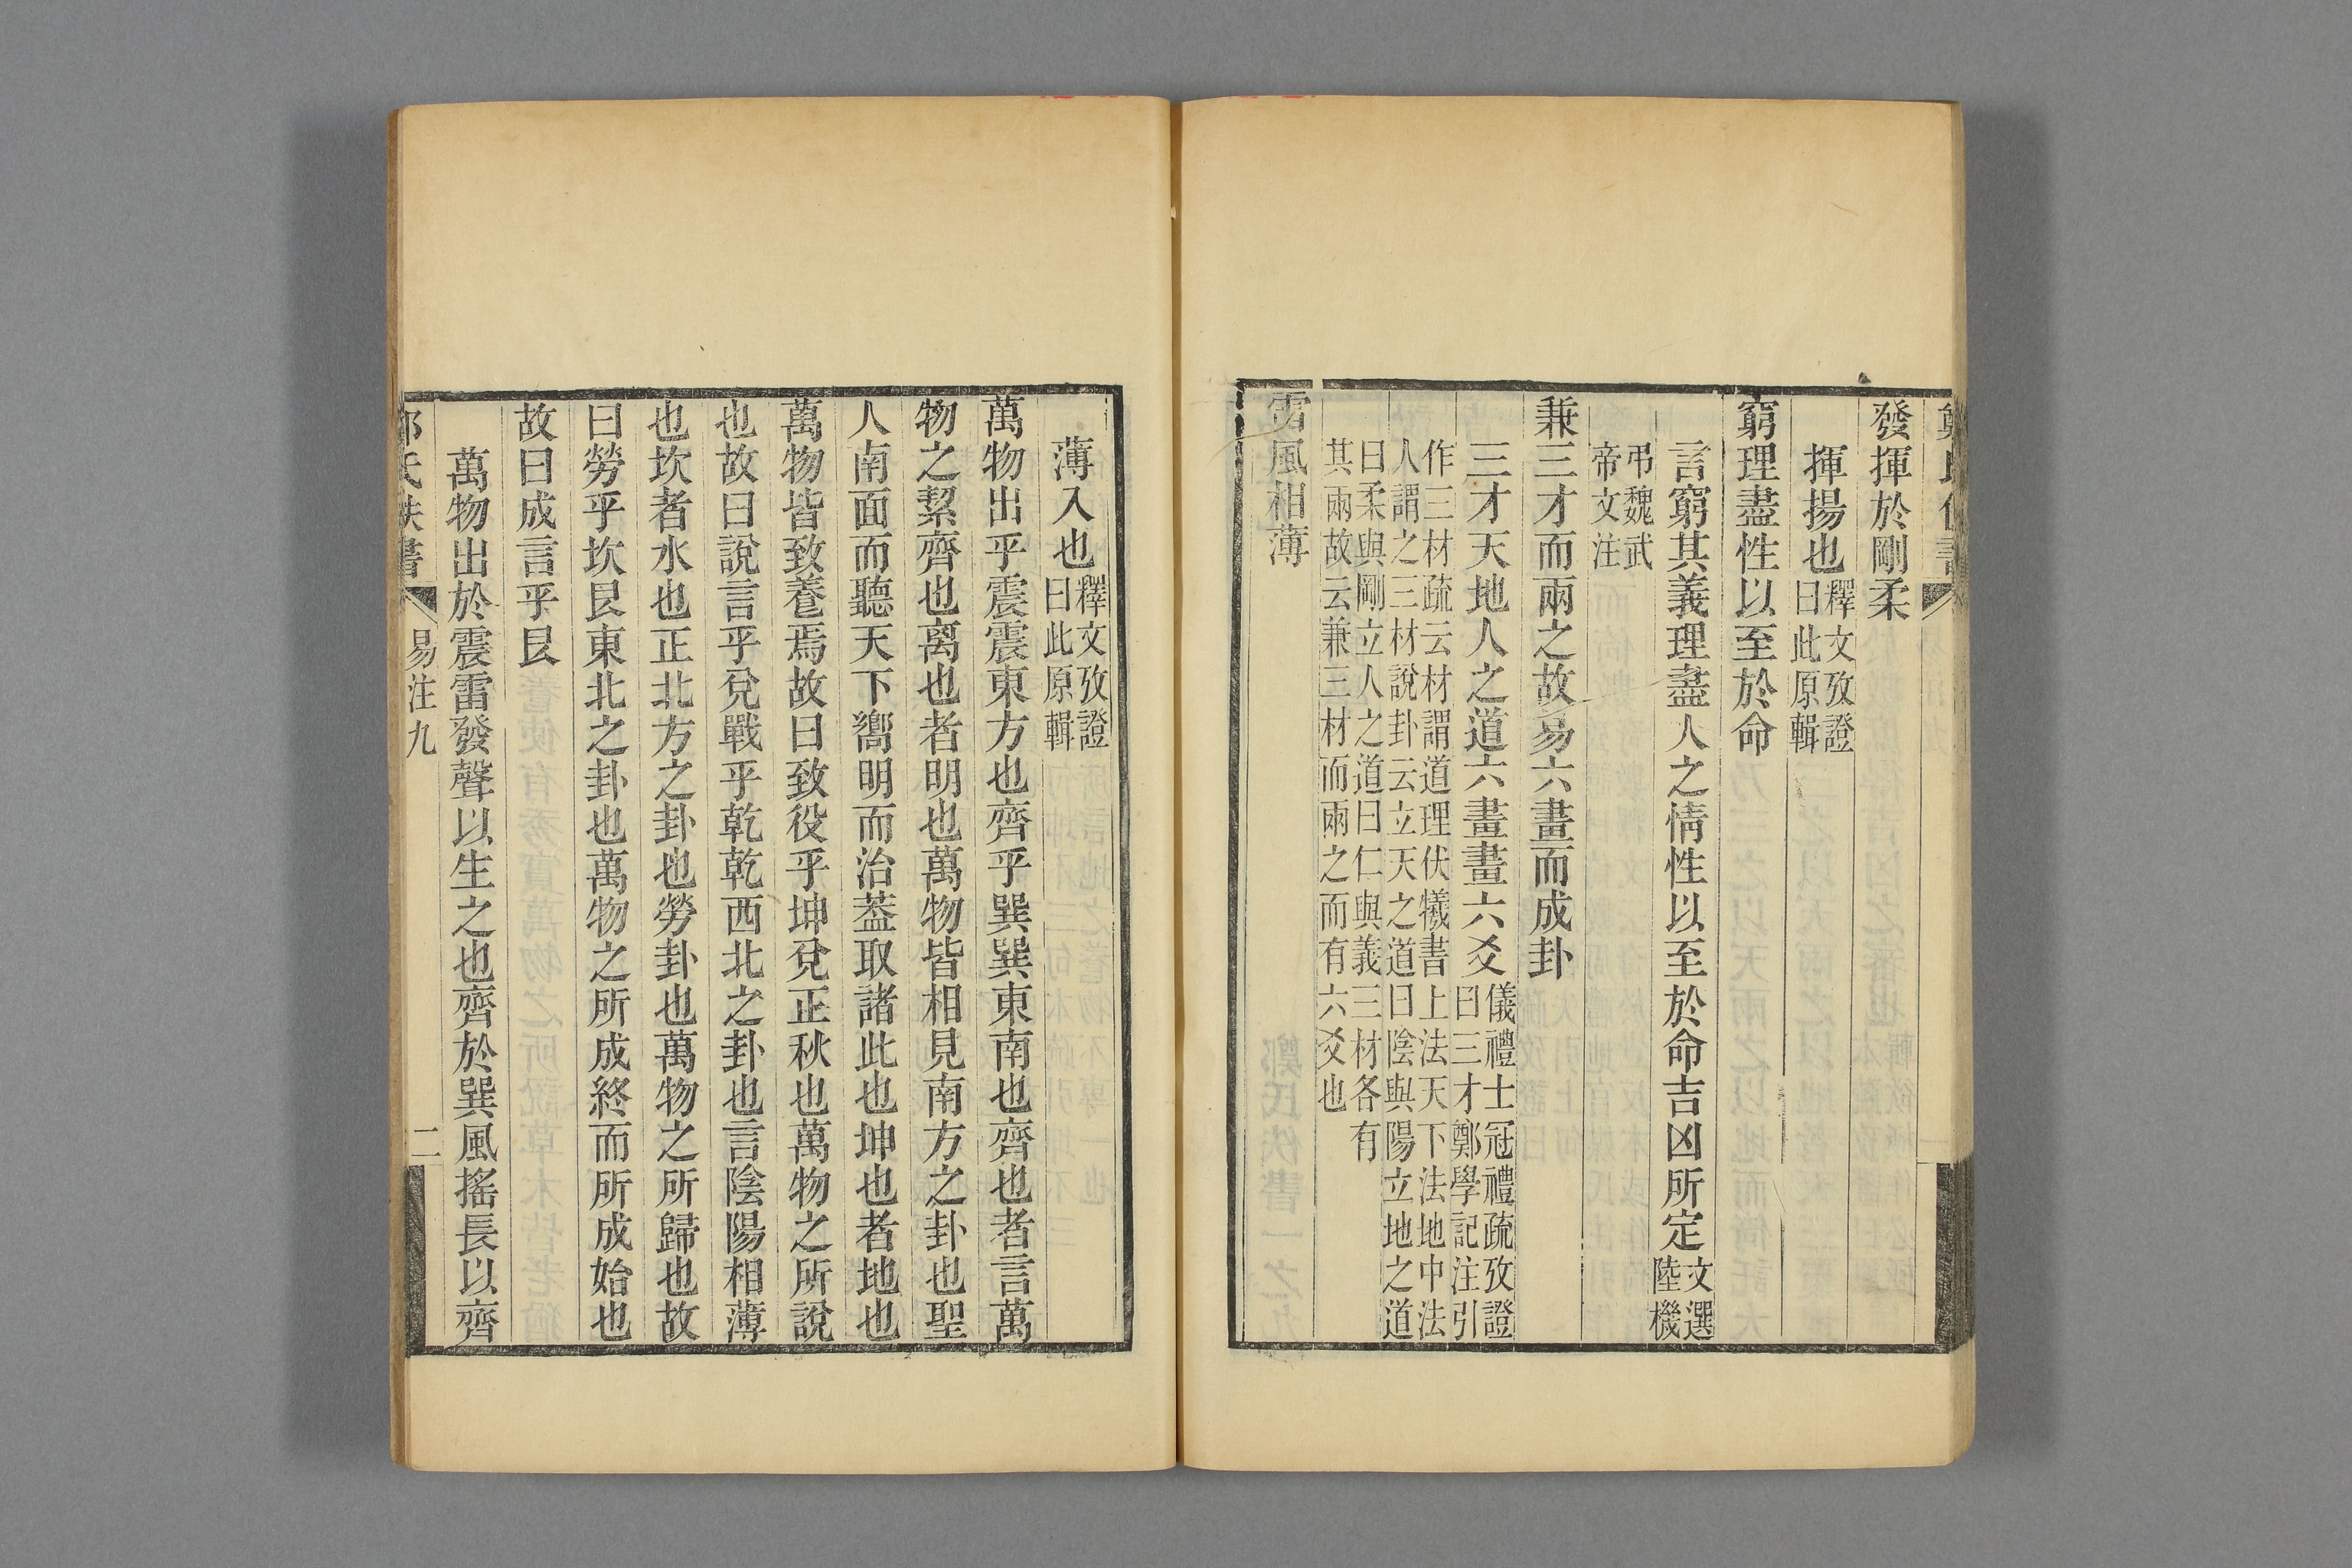 發揮於剛柔
揮揚也釋文攷證曰此原輯
窮理盡性以至於命
言窮其義理盡人之情性以至於命吉凶所定文選陸機
弔魏武帝文注
兼三才而兩之故易六畫而成卦
三才天地人之道六畫畫六爻儀禮士冠禮疏攷證曰三才鄭學記注引
作三材疏云材謂道理伏犧書上法天下法地中法
人謂之三材說卦云立天之道曰陰與陽立地之道
曰柔與剛立人之道曰仁與義三材各有
其兩故云兼三材而兩之而有六爻也
雷風相薄
薄入也釋文攷證曰此原輯
萬物出乎震震東方也齊乎巽巽東南也齊也者言萬
物之絜齊也离也者明也萬物皆相見南方之卦也聖
人南面而聽天下嚮明而治葢取諸此也坤也者地也
萬物皆致養焉故曰致役乎坤兌正秋也萬物之所說
也故曰說言乎兌戰乎乾乾西北之卦也言陰陽相薄
也坎者水也正北方之卦也勞卦也萬物之所歸也故
曰勞乎坎艮東北之卦也萬物之所成終而所成始也
故曰成言乎艮
萬物出於震雷發聲以生之也齊於巽風搖長以齊
氏佚書 易注九 二